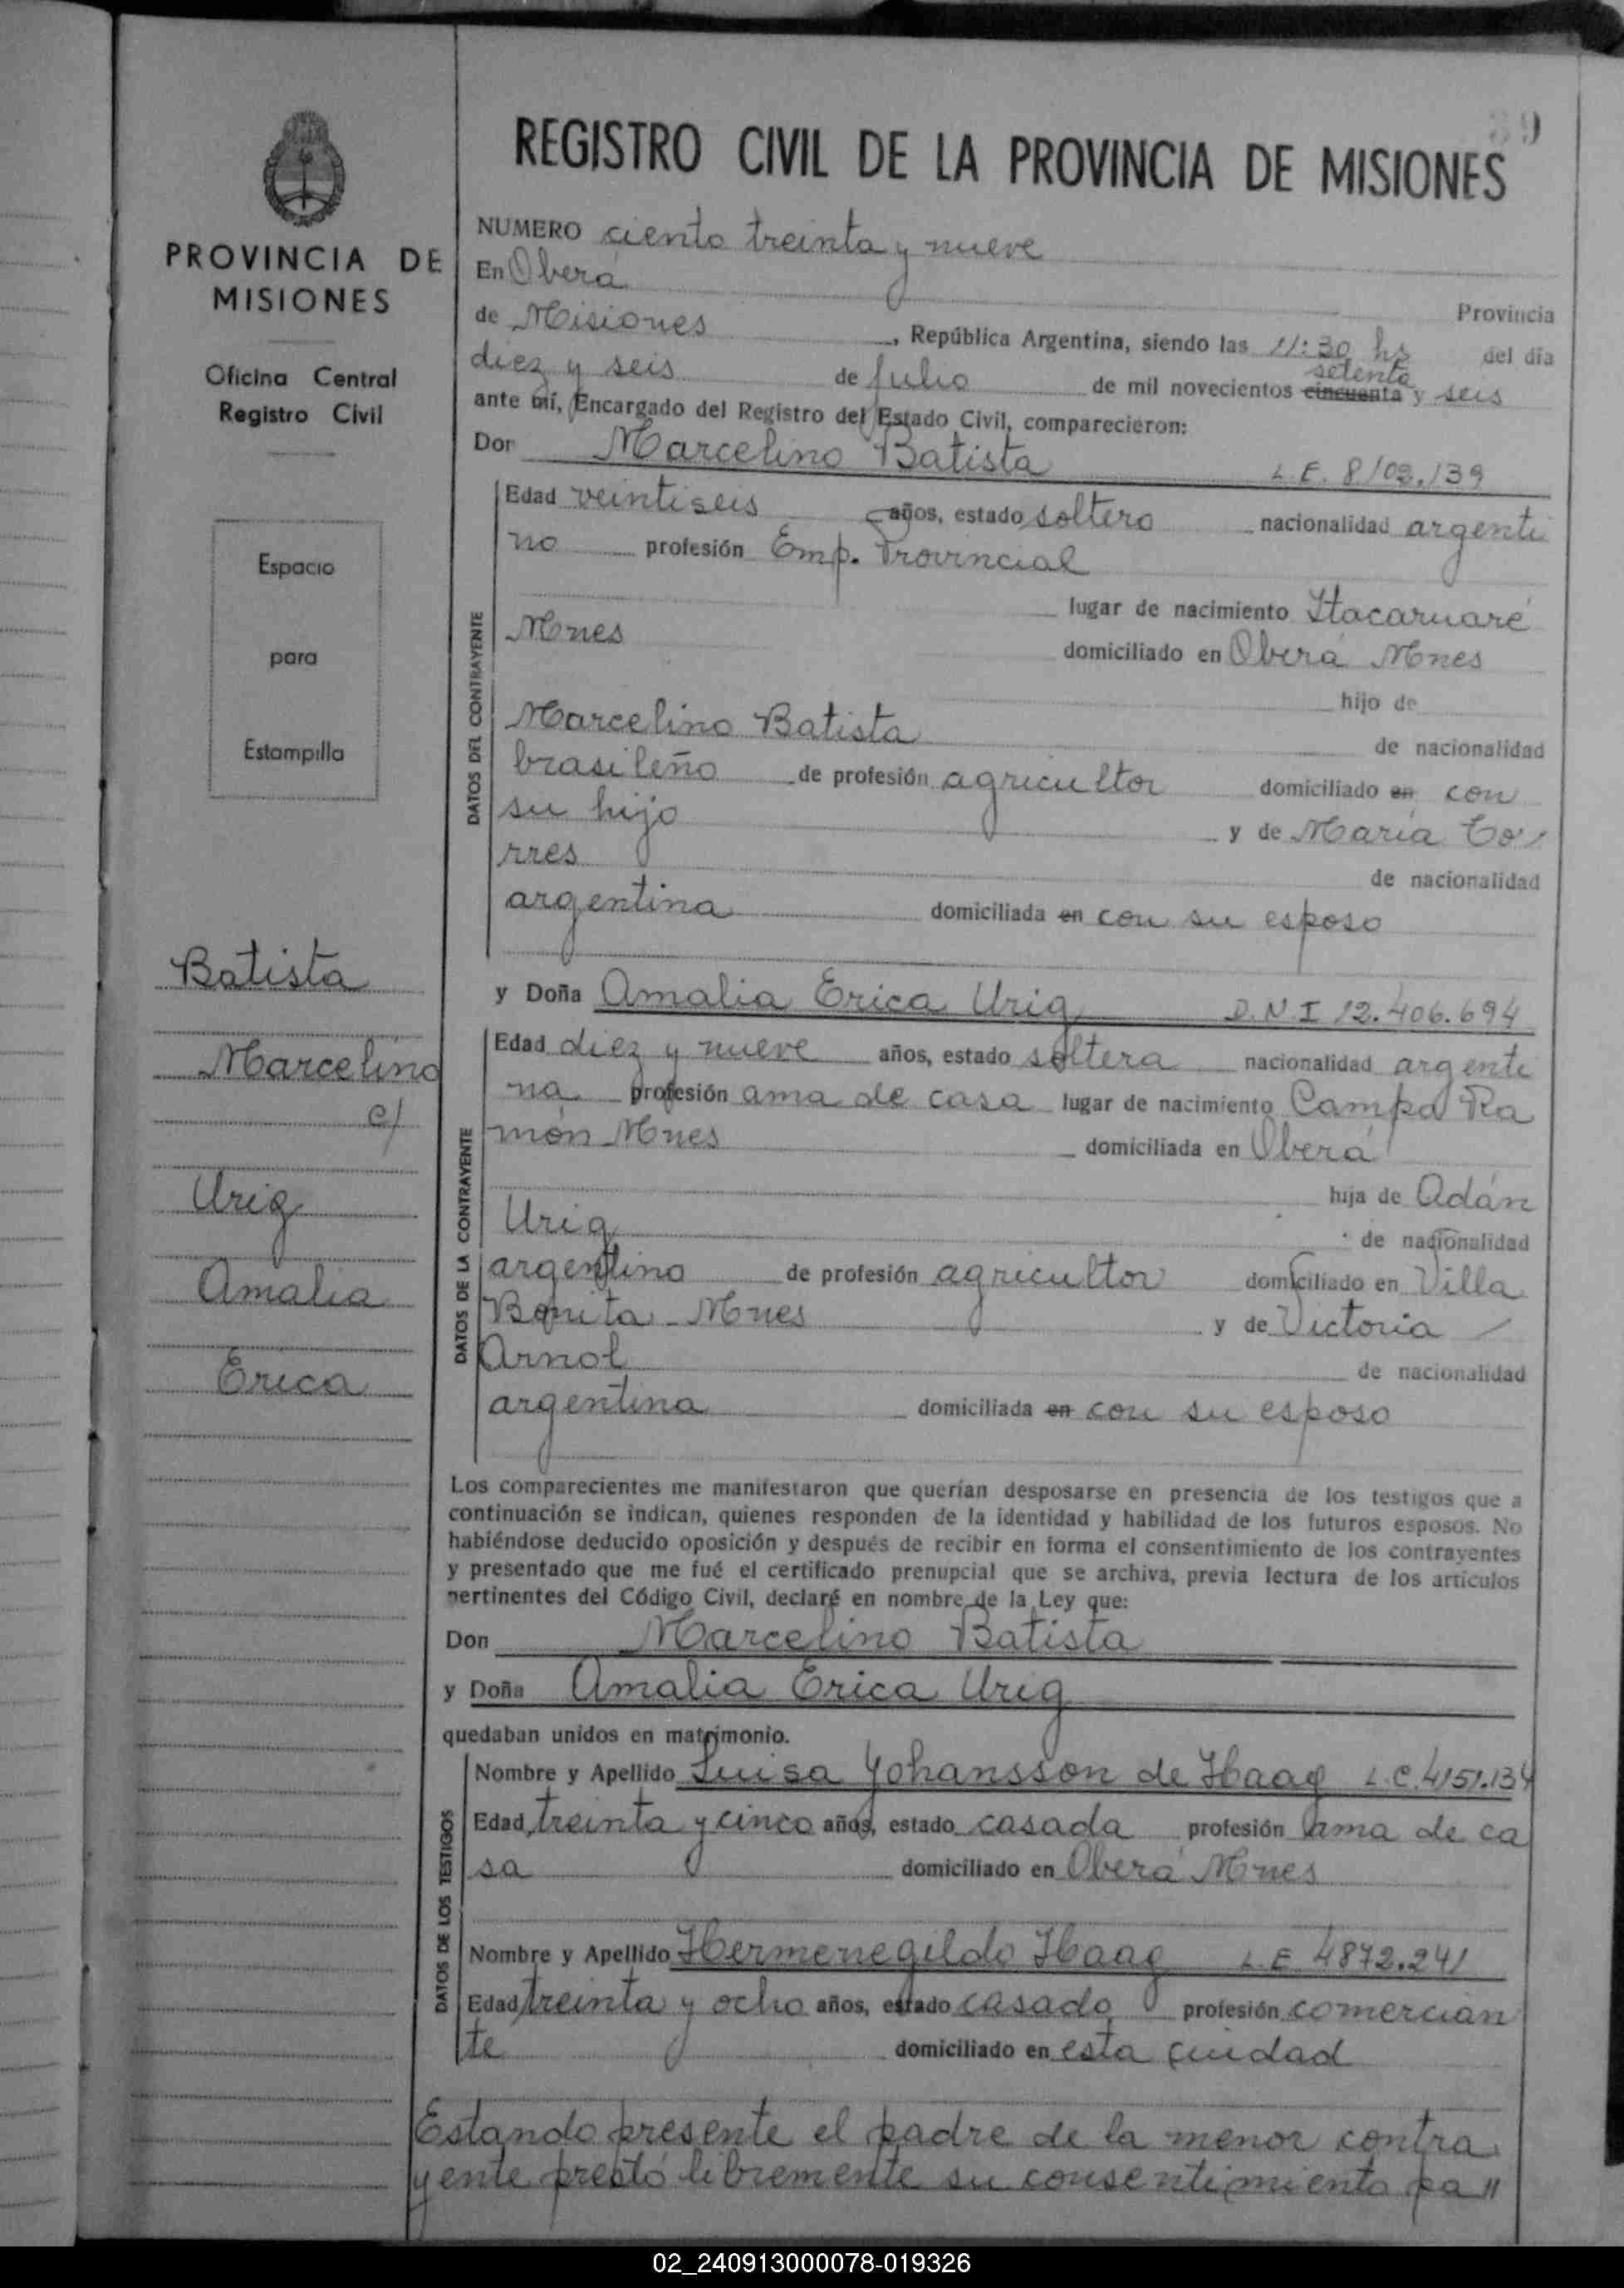 89
REGISTRO CIVIL DE LA PROVINCIA DE MISIONES
PROVINCIA DE
MISIONES
Oficina Central
Registro Civil
Espacio
para
Estampilla
Batista
Marcelino
c/
Urig
Amalia
Erica
NUMERO ciento treinta y nueve
En Oberá
Provincia
de Misiones, República Argentina, siendo las 11:30 hs del día
diez y seis de Julio de mil novecientos cincuenta setenta y seis
ante mí, Encargado del Registro del Estado Civil, comparecieron:
Don Marcelino Batista L.E. 8/02./39
DATOS DEL CONTRAYENTE
Edad veintiseis años, estado soltero nacionalidad argenti
no profesión Emp. Provincial
lugar de nacimiento Itacaruaré
Mnes domiciliado en Oberá Mnes
hijo de
Marcelino Batista de nacionalidad
brasileño de profesión agricultor domiciliado en con
su hijo y de María To/
rres de nacionalidad
argentina domiciliada en con su esposo
y Doña Amalia Erica Urig D.N.I 12.406.694
DATOS DE LA CONTRAYENTE
Edad diez y nueve años, estado soltera nacionalidad argenti
na profesión ama de casa lugar de nacimiento Campo Ra
món Mnes domiciliada en Oberá
hija de Adán
Urig de nacionalidad
argentino de profesión agricultor domiciliado en Villa
Bonita - Mnes y de Victoria /
Arnol de nacionalidad
argentina domiciliada en con su esposo
Los comparecientes me manifestaron que querían desposarse en presencia de los testigos que a
continuación se indican, quienes responden de la identidad y habilidad de los futuros esposos. No
habiéndose deducido oposición y después de recibir en forma el consentimiento de los contrayentes
y presentado que me fué el certificado prenupcial que se archiva, previa lectura de los artículos
pertinentes del Código Civil, declaré en nombre de la Ley que:
Don Marcelino Batista
y Doña Amalia Erica Urig
quedaban unidos en matrimonio.
DATOS DE LOS TESTIGOS
Nombre y Apellido Luisa Yohansson de Haag L.C. 4151.134
Edad treinta y cinco años, estado casada profesión ama de ca
sa domiciliado en Oberá Mnes
Nombre y Apellido Hermenegildo Haag L.E 4872.241
Edad treinta y ocho años, estado casado profesión comercian
te domiciliado en esta ciudad
Estando presente el padre de la menor contra
yente prestó libremente su consentimiento pa"
02_240913000078-019326